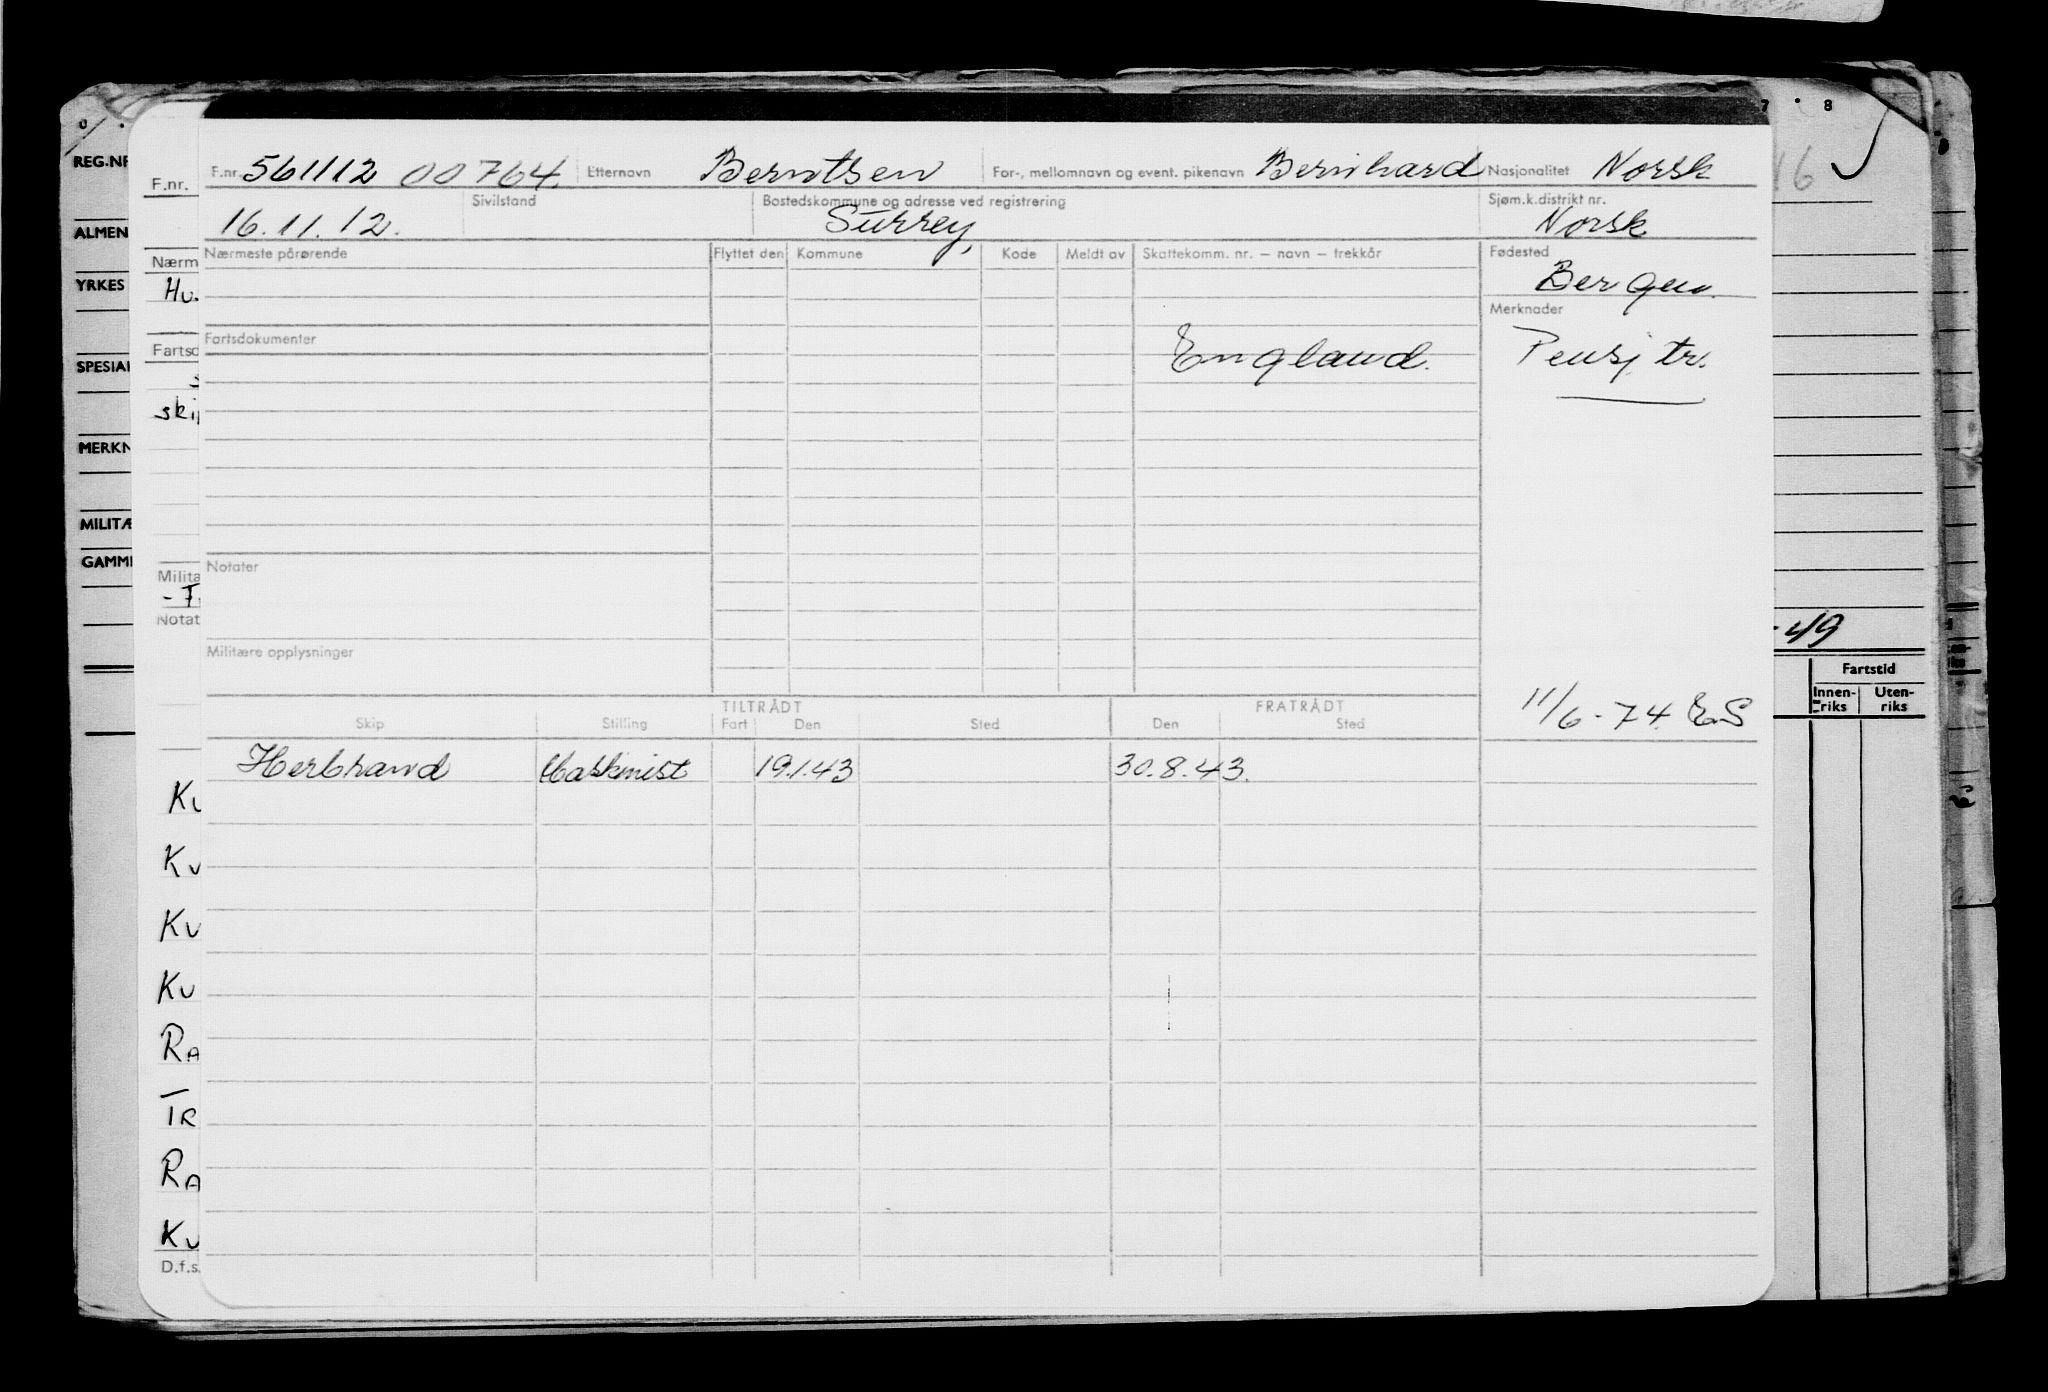 7 · 8
REG.NR
F.nr.
F.nr. 561112 00764. Etternavn Berntsen For-, mellomnavn og event. pikenavn Bernhard Nasjonalitet Norsk
16
16.11.12. Sivilstand Bostedskommune og adresse ved registrering Surrey, Sjøm.k.distrikt nr. Norsk
ALMEN
Nærm
Nærmeste pårørende Flyttet den Kommune Kode Meldt av Skattekomm. nr. – navn – trekkår Fødested
Bergen.
YRKES
Hu.
Merknader
Fartsd
Fartsdokumenter
England. Pensj tr.
SPESIAL
ski
MERKN
MILITÆ
GAMME
Notater
Milita
Notat
-49
Militære opplysninger
Fartstid
Innen-riks Uten-riks
11/6-74. E.S
TILTRÅDT FRATRÅDT
Skip Stilling Fart Den Sted Den Sted
Herbrand Maskmist 19.1.43 30.8.43.
Ku
Kv
Kv
Ku
RA
TR
RA
Ku
D.f.s.